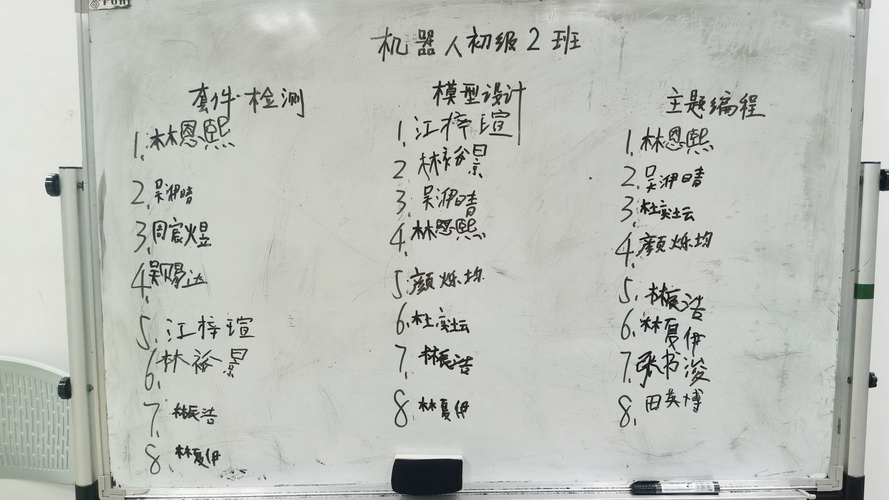 机器人初级2班
套件检测
1.林恩熙
2.吴湉晴
3.周宸煜
4.吴赐达
5.江梓瑄
6.林裕景
7.林辰浩
8.林夏伊
模型设计
1.江梓瑄
2.林裕景
3.吴湉晴
4.林恩熙
5.颜烁均
6.杜
7.林辰浩
8.林夏伊
主题编程
1.林恩熙
2.吴湉晴
3.杜
4.颜烁均
5.林辰浩
6.林夏伊
7.张书浚
8.田英博